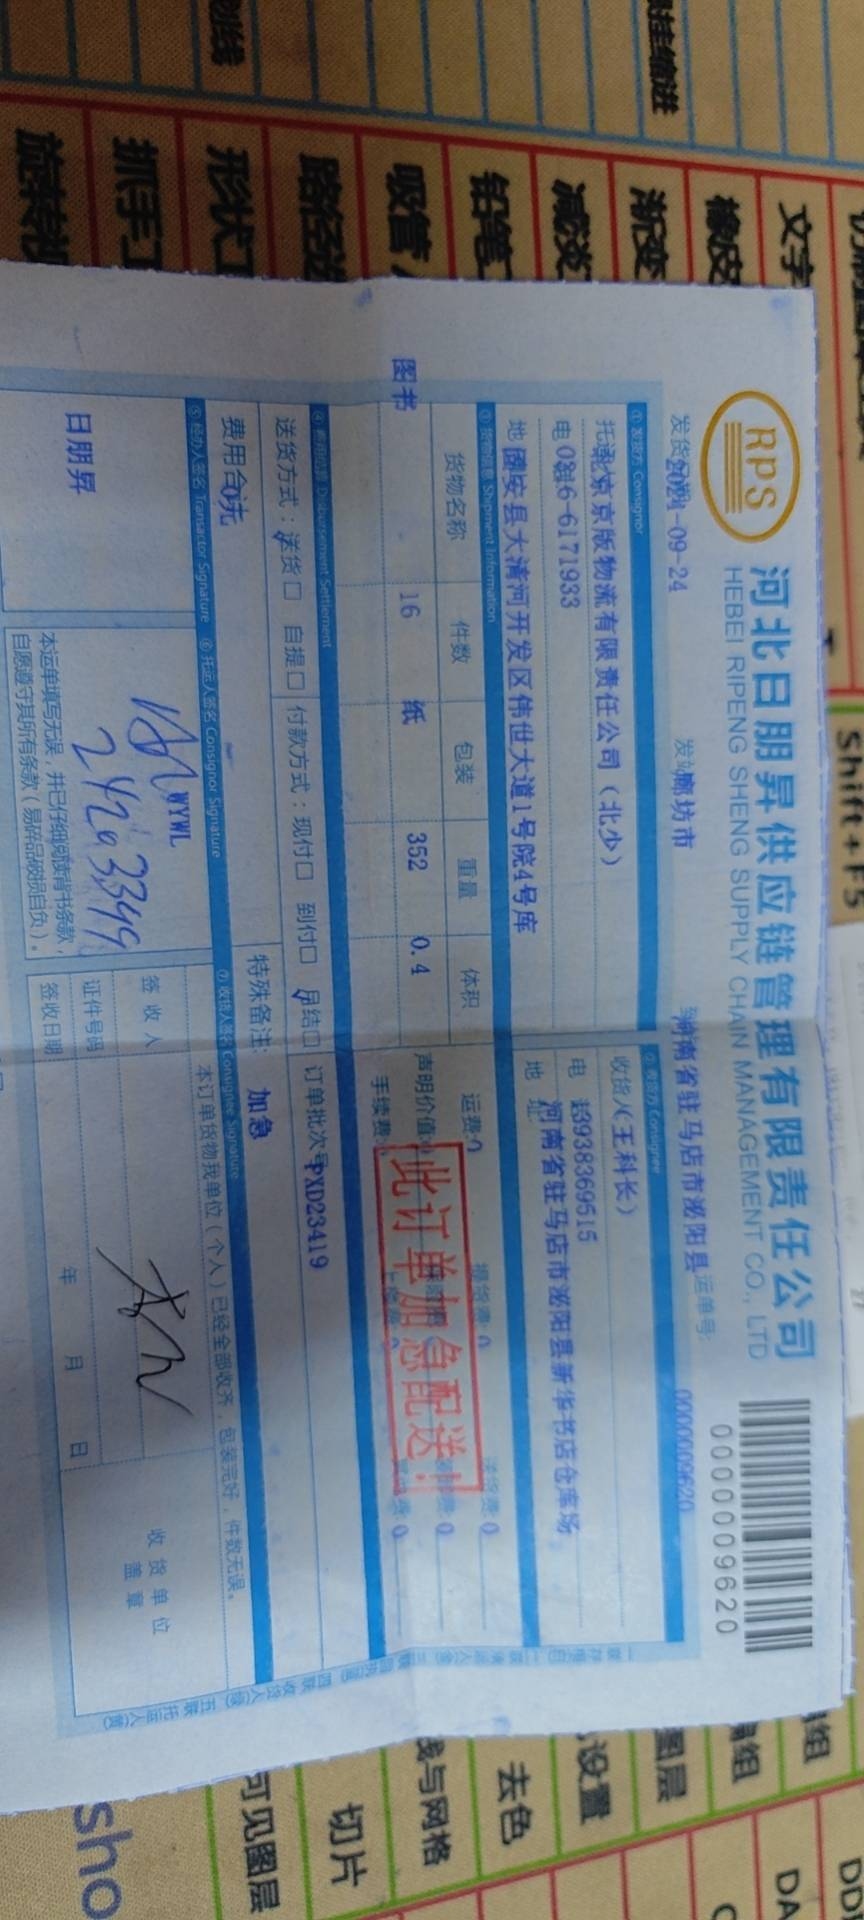 RPS
河北日朋昇供应链管理有限责任公司
HEBEI RIPENG SHENG SUPPLY CHAIN MANAGEMENT CO., LTD
0000009620
2024-09-24
廊坊市
河南省驻马店市泌阳县
运单号:
0000009620
① 发货方 Consignor
② 收货方 Consignee
北京京版物流有限责任公司（北少）
收货人(王科长)
0316-6171933
13938369515
固安县大清河开发区伟世大道1号院4号库
河南省驻马店市泌阳县新华书店仓库场
③ 货物信息 Shipment Information
货物名称 件数 包装 重量 体积
运费:0
提货费:0
送货费:0
图书 16 纸 352 0.4
声明价值:
手续费:
此订单加急配送!
④ 费用结算 Disbursement Settlement
送货方式：送货□ 自提□ 付款方式：现付□ 到付□ 月结□
订单批次号
PXD23419
费用合计
特殊备注:
加急
⑤ 经办人签名 Transactor Signature
⑥ 托运人签名 Consignor Signature
⑦ 收货人签名 Consignee Signature
日朋昇
WYWL
24203349
本运单填写无误，并已仔细阅读背书条款，
自愿遵守其所有条款（易碎品破损自负）。
本订单货物我单位（个人）已经全部收齐，包装完好，件数无误。
签收人
证件号码
签收日期
年 月 日
收货单位
盖章
挂缩进
文字
橡皮
渐变
减淡
铅笔工
吸管
路径选
形状工
抓手工
旋转视
Shift+F5
编组
图层
设置
去色
线与网格
切片
可见图层
sho